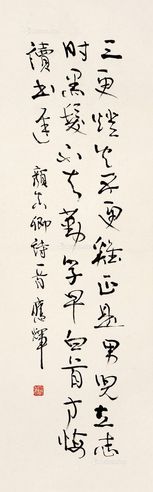 三更燈火五更雞正是男兒立志
时黑髮不知勤学早白首方悔
讀书遲 顏真卿詩一首 應輝